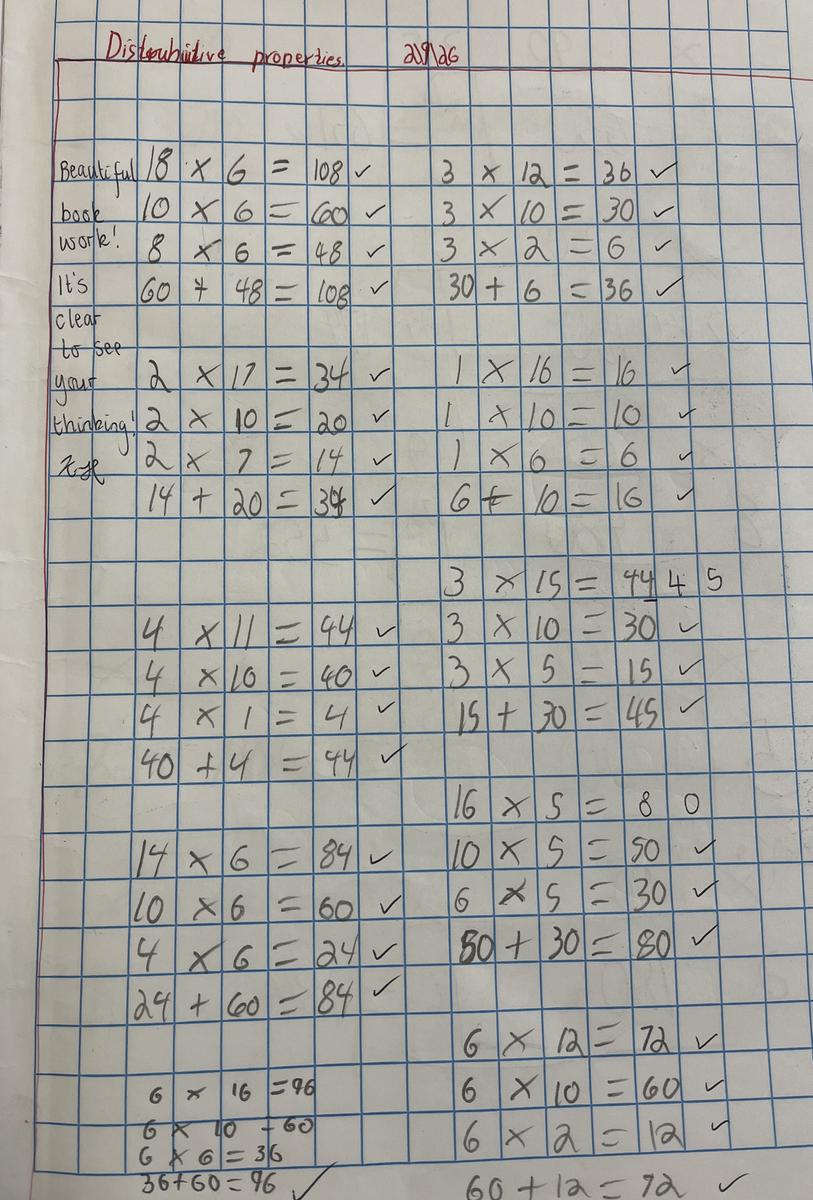 Distrubutive properties. 2\9\26
Beautiful
book
work!
It's
clear
to see
your
thinking!
18 × 6 = 108 ✓
10 × 6 = 60 ✓
8 × 6 = 48 ✓
60 + 48 = 108 ✓
2 × 17 = 34 ✓
2 × 10 = 20 ✓
2 × 7 = 14 ✓
14 + 20 = 34 ✓
4 × 11 = 44 ✓
4 × 10 = 40 ✓
4 × 1 = 4 ✓
40 + 4 = 44 ✓
14 × 6 = 84 ✓
10 × 6 = 60 ✓
4 × 6 = 24 ✓
24 + 60 = 84 ✓
6 × 16 = 96
6 × 10 = 60
6 × 6 = 36
36+60 = 96 ✓
3 × 12 = 36 ✓
3 × 10 = 30 ✓
3 × 2 = 6 ✓
30 + 6 = 36 ✓
1 × 16 = 16 ✓
1 × 10 = 10 ✓
1 × 6 = 6 ✓
6 + 10 = 16 ✓
3 × 15 = 44 4 5
3 × 10 = 30 ✓
3 × 5 = 15 ✓
15 + 30 = 45 ✓
16 × 5 = 8 0
10 × 5 = 50 ✓
6 × 5 = 30 ✓
50 + 30 = 80 ✓
6 × 12 = 72 ✓
6 × 10 = 60 ✓
6 × 2 = 12 ✓
60 + 12 = 72 ✓